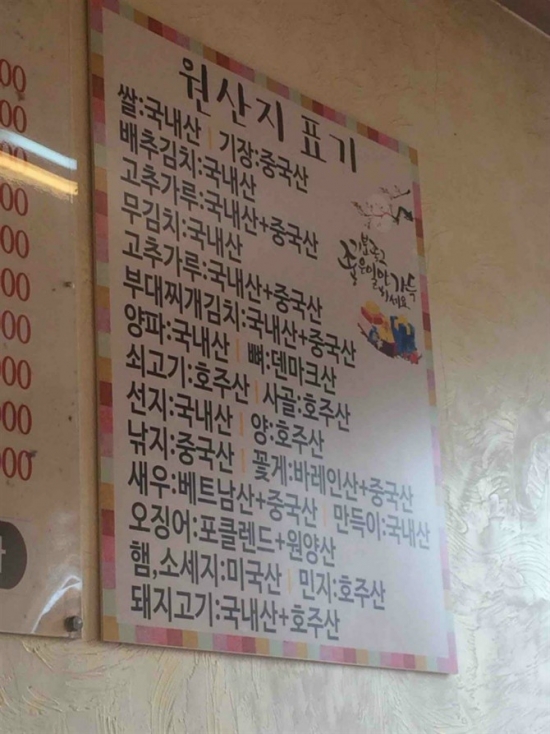 원산지 표기
쌀:국내산 | 기장:중국산
배추김치:국내산
고추가루:국내산+중국산
무김치:국내산
고추가루:국내산+중국산
부대찌개김치:국내산+중국산
양파:국내산 | 뼈:덴마크산
쇠고기:호주산 | 사골:호주산
선지:국내산 | 양:호주산
낚지:중국산 | 꽃게:바레인산+중국산
새우:베트남산+중국산 | 만득이:국내산
오징어:포클렌드+원양산
햄,소세지:미국산 | 민지:호주산
돼지고기:국내산+호주산
기분좋고
좋은일만 가득
하세요
00
000
000
000
000
000
000
000
000